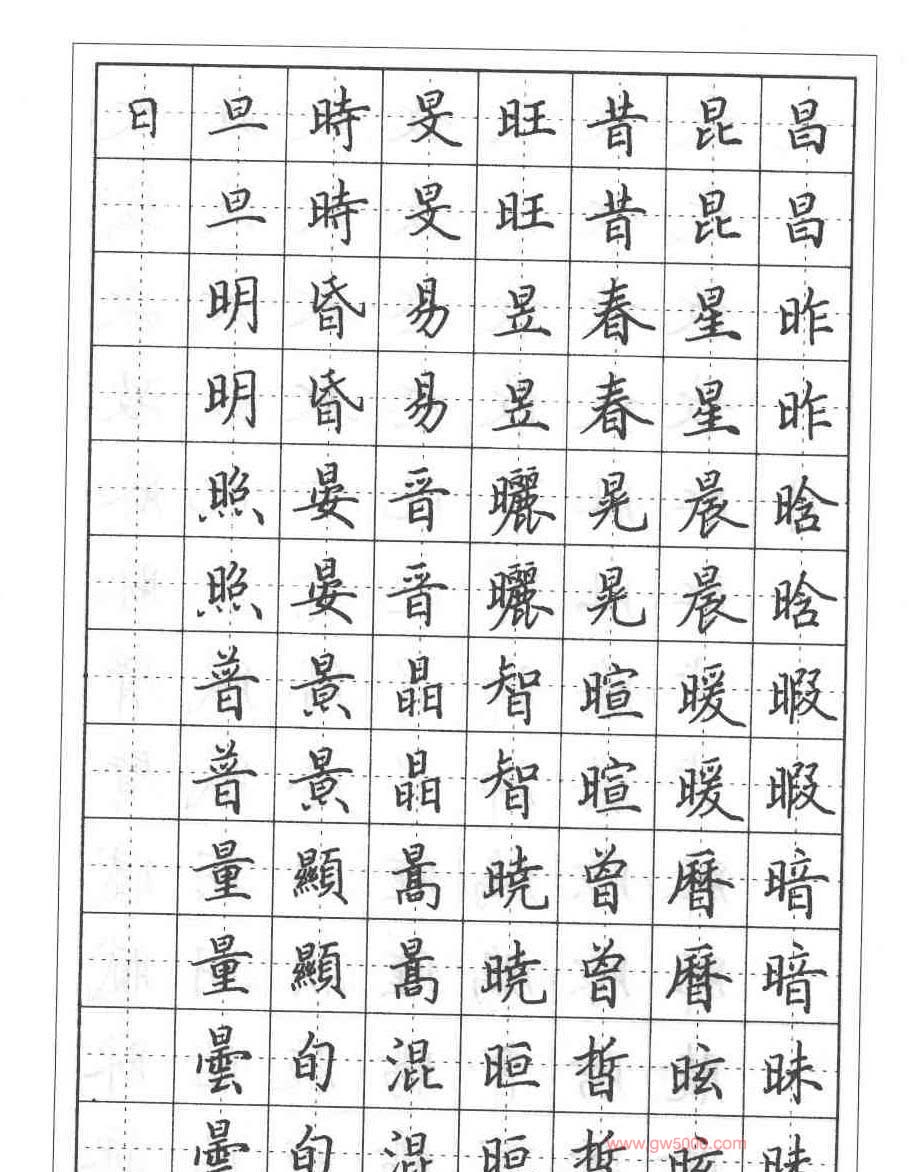 日旦時旻旺昔昆昌
旦時旻旺昔昆昌
明昏易昱春星昨
明昏易昱春星昨
照晏晋曬晃晨晗
照晏晋曬晃晨晗
普景晶智暄暖暇
普景晶智暄暖暇
量顯暠暁曾曆暗
量顯暠暁曾曆暗
曇旬混晅晢昡昧
曇旬混晅晢昡昧
www.gw5000.com